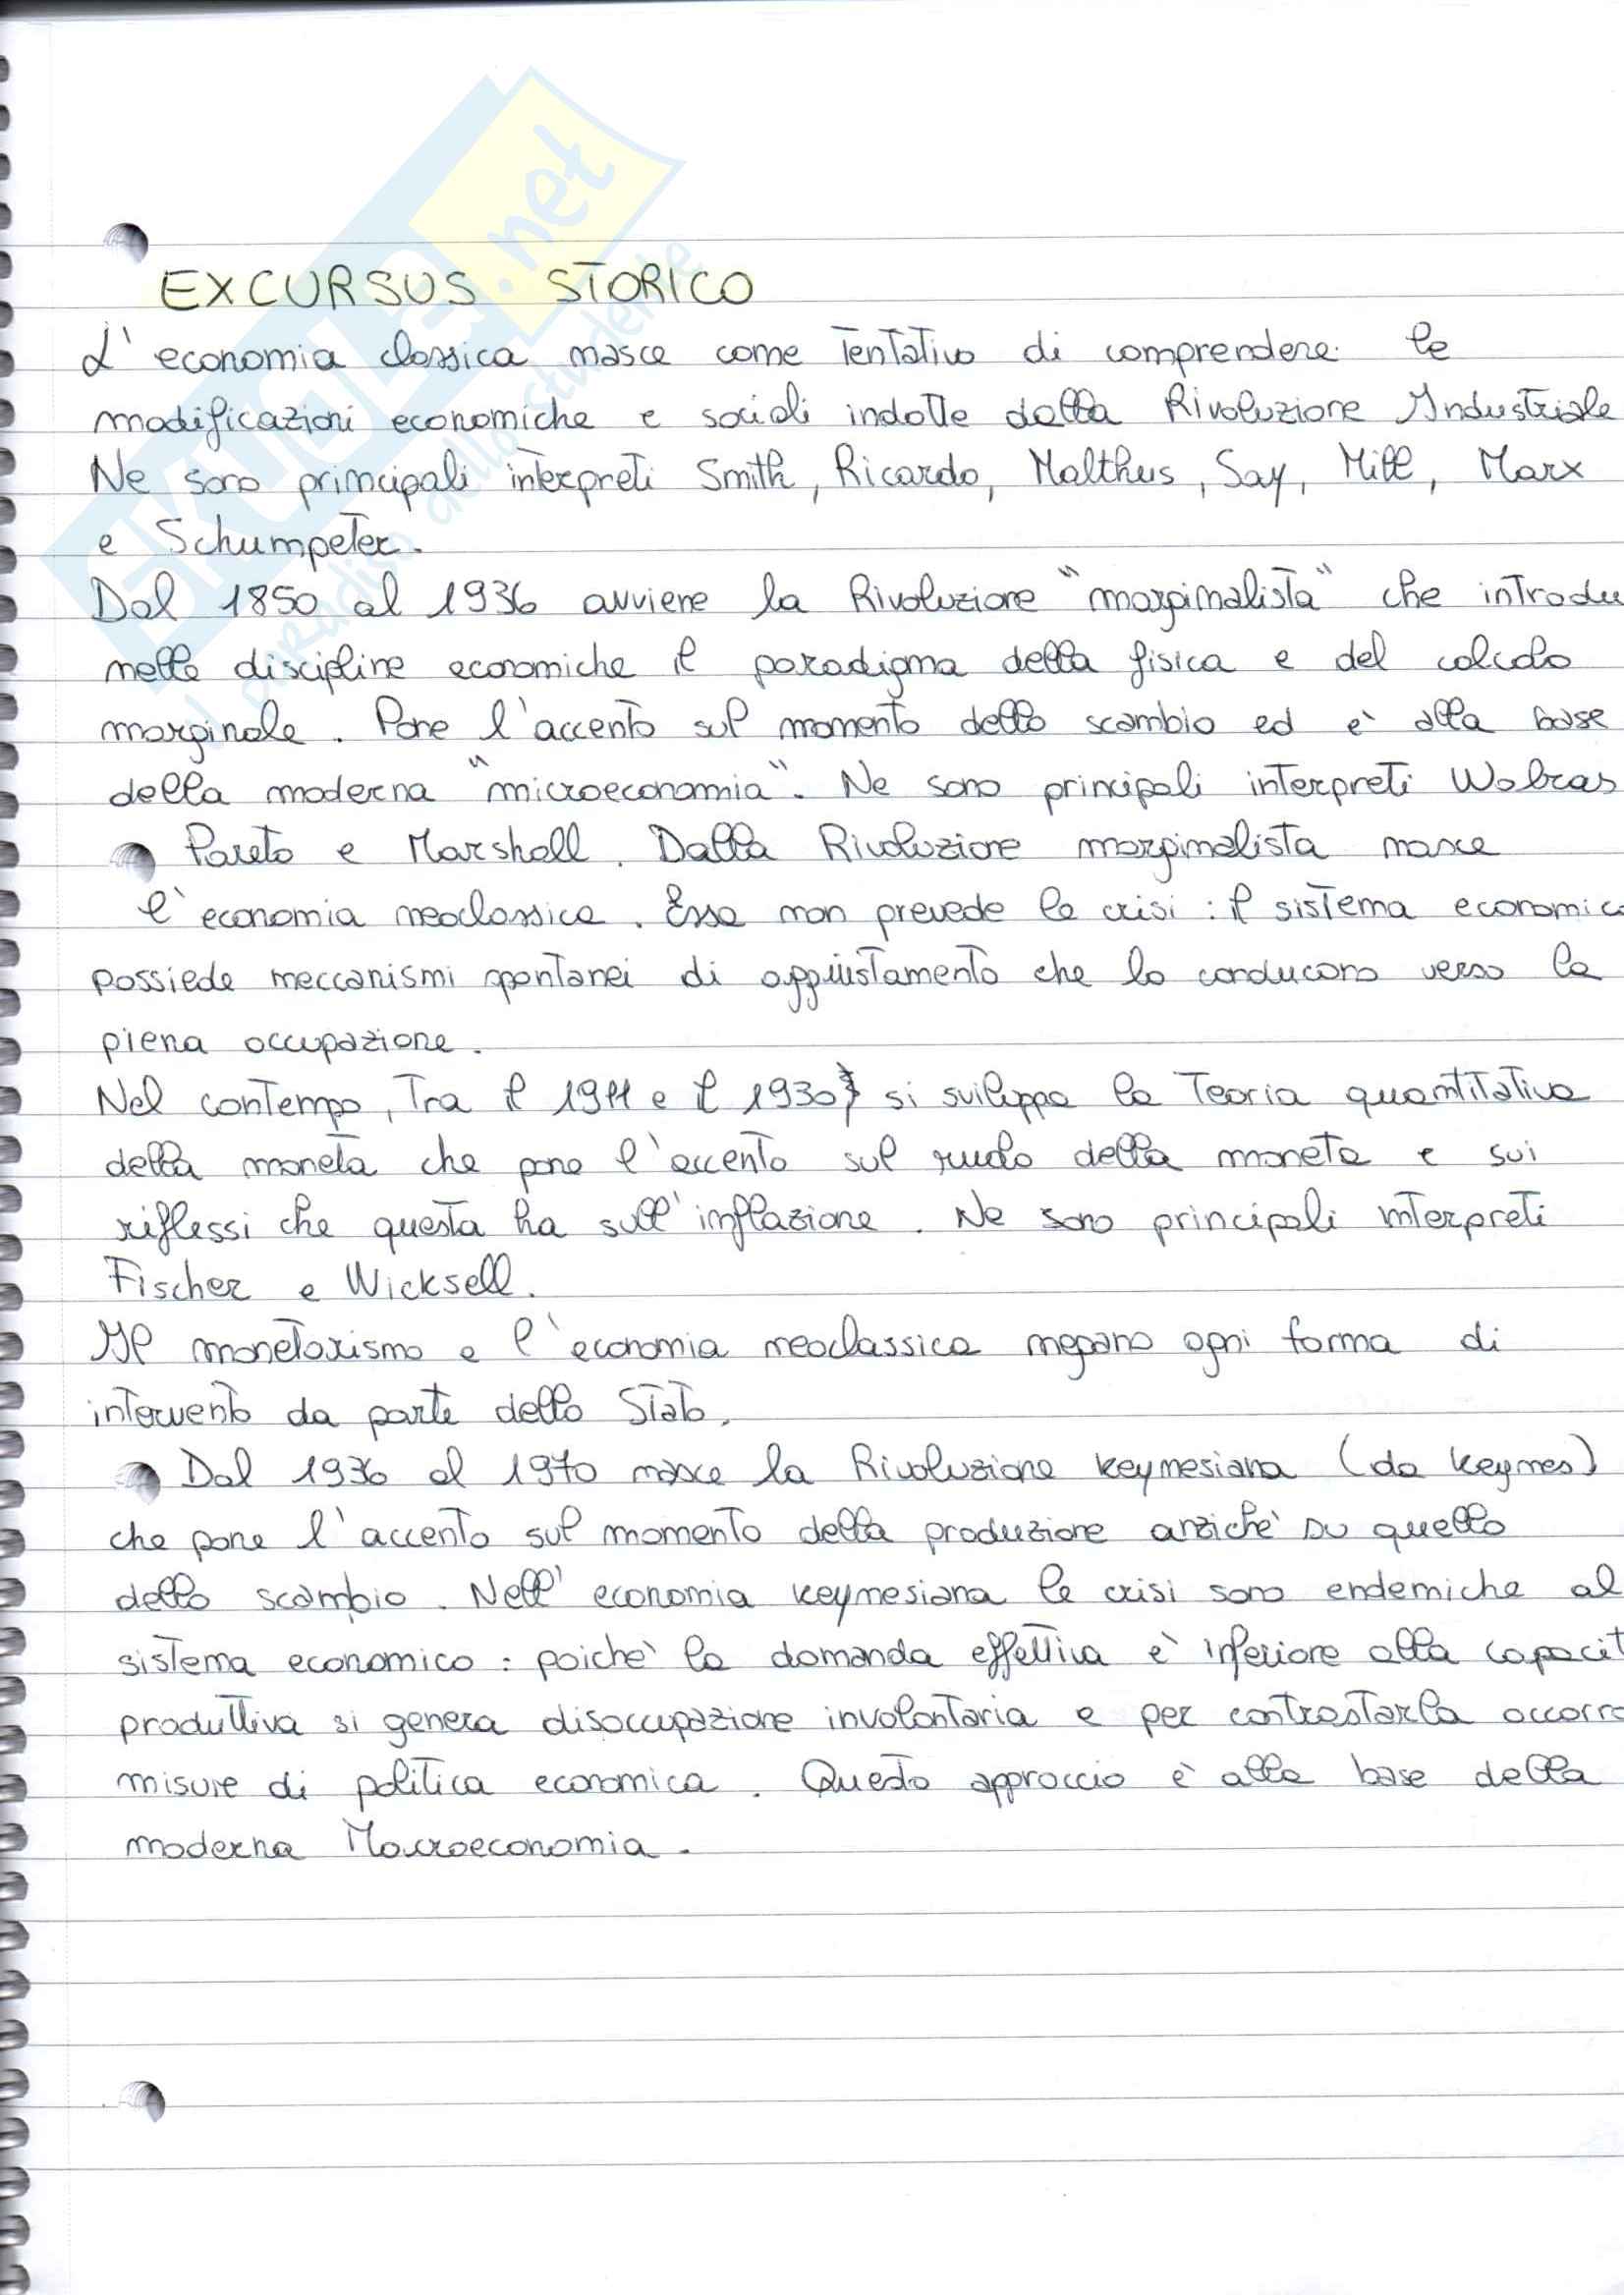 EXCURSUS STORICO
L'economia classica nasce come tentativo di comprendere le
modificazioni economiche e sociali indotte dalla Rivoluzione Industriale
Ne sono principali interpreti Smith, Ricardo, Malthus, Say, Mill, Marx
e Schumpeter.
Dal 1850 al 1936 avviene la Rivoluzione "marginalista" che introdu
nelle discipline economiche il paradigma della fisica e del calcolo
marginale. Pone l'accento sul momento dello scambio ed è alla base
della moderna "microeconomia". Ne sono principali interpreti Walras
Pareto e Marshall. Dalla Rivoluzione marginalista nasce
l'economia neoclassica. Essa non prevede le crisi: il sistema economic
possiede meccanismi spontanei di aggiustamento che lo conducono verso la
piena occupazione.
Nel contempo, tra il 1911 e il 1930, si sviluppa la Teoria quantitativa
della moneta che pone l'accento sul ruolo della moneta e sui
riflessi che questa ha sull'inflazione. Ne sono principali interpreti
Fischer e Wicksell.
Il monetarismo e l'economia neoclassica negano ogni forma di
intervento da parte dello Stato.
Dal 1936 al 1970 nasce la Rivoluzione keynesiana (da Keynes)
che pone l'accento sul momento della produzione anziché su quello
dello scambio. Nell'economia keynesiana le crisi sono endemiche al
sistema economico: poiché la domanda effettiva è inferiore alla capacit
produttiva si genera disoccupazione involontaria e per contrastarla occorro
misure di politica economica. Questo approccio è alla base della
moderna Macroeconomia.
SKUOLA.net
il paradiso dello studente